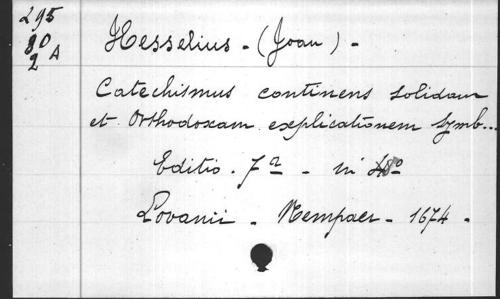 295
80
2 A
Hesselius - (Joan) -
Catechismus continens solidam
et Orthodoxam explicationem Symb...
Editio. 7ª - in 18º
Lovanii - Nempaei - 1674 -